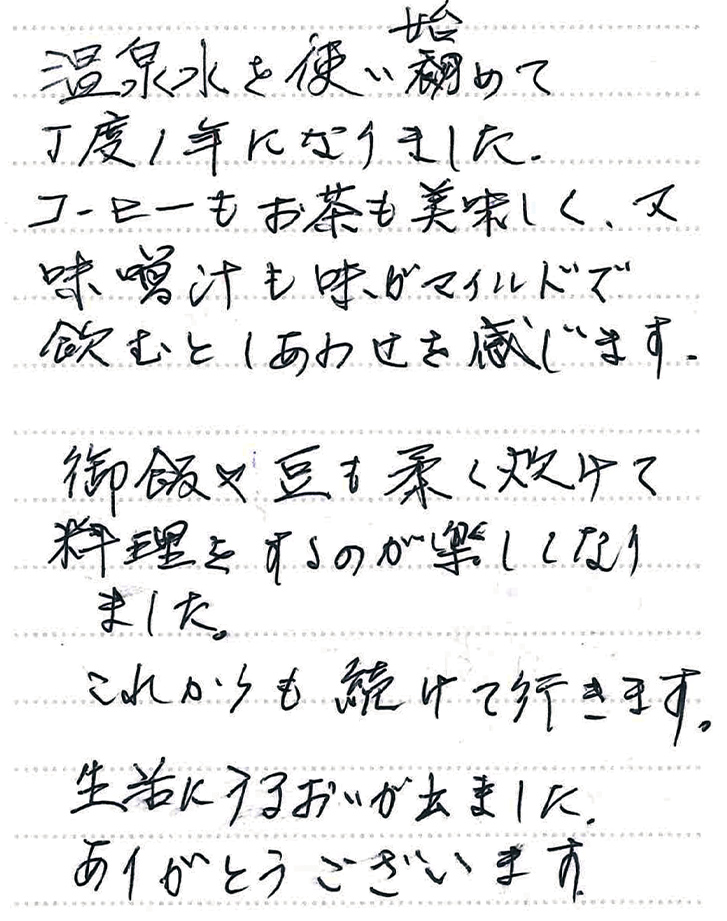 温泉水を使い始めて
丁度1年になりました.
コーヒーもお茶も美味しく、又
味噌汁も味がマイルドで
飲むとしあわせを感じます.
御飯や豆も柔く炊けて
料理をするのが楽しくなり
ました。
これからも続けて行きます。
生活にうるおいが出ました.
ありがとうございます.